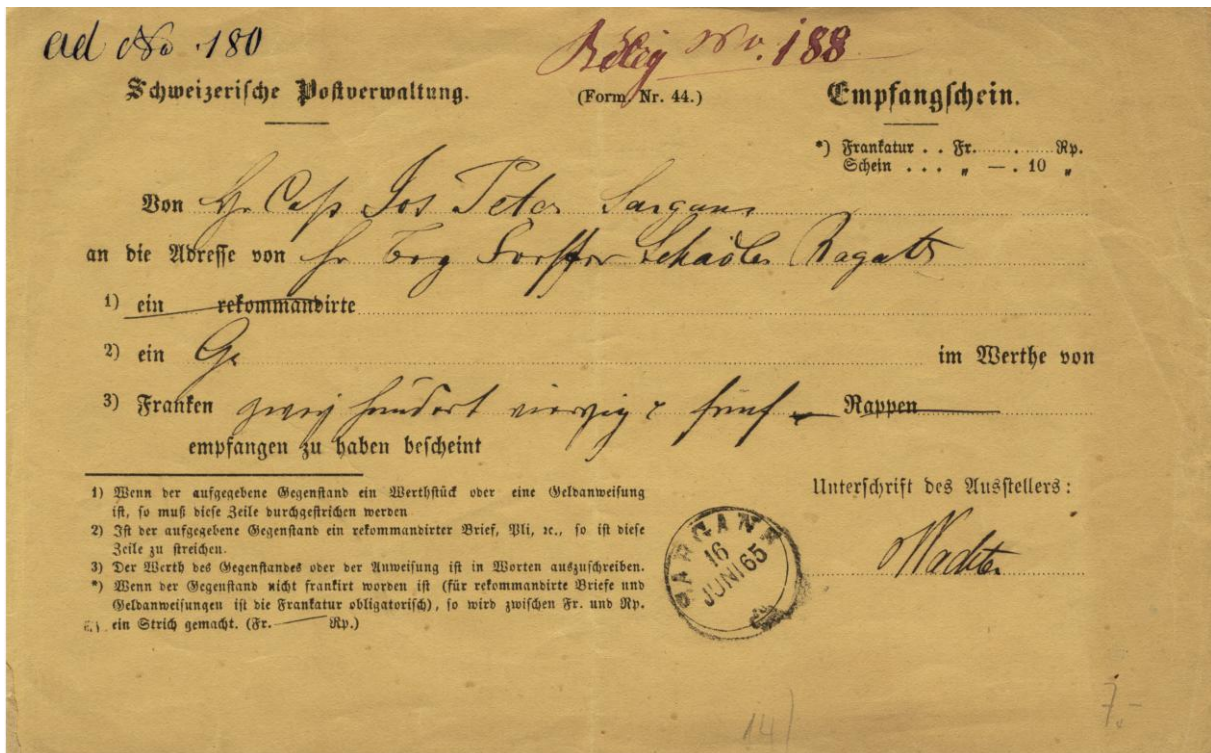 ad No 180
Beleg No. 188
Schweizerische Postverwaltung.
(Form. Nr. 44.)
Empfangschein.
*) Frankatur . . Fr. . Rp.
Schein . . . „ — . 10 „
Von Hr. Cap Jos Peter Sargans
an die Adresse von Hr Schädler Ragatz
1) ein rekommandirte
2) ein
im Werthe von
3) Franken zwey hundert vierzig & fünf Rappen
empfangen zu haben bescheint
1) Wenn der aufgegebene Gegenstand ein Werthstück oder eine Geldanweisung
ist, so muß diese Zeile durchgestrichen werden
2) Ist der aufgegebene Gegenstand ein rekommandirter Brief, Pli, ꝛc., so ist diese
Zeile zu streichen.
3) Der Werth des Gegenstandes oder der Anweisung ist in Worten auszuschreiben.
*) Wenn der Gegenstand nicht frankirt worden ist (für rekommandirte Briefe und
Geldanweisungen ist die Frankatur obligatorisch), so wird zwischen Fr. und Rp.
ein Strich gemacht. (Fr. — Rp.)
Unterschrift des Ausstellers:
SARGANS
16
JUNI 65
Wachter
14)
7.-